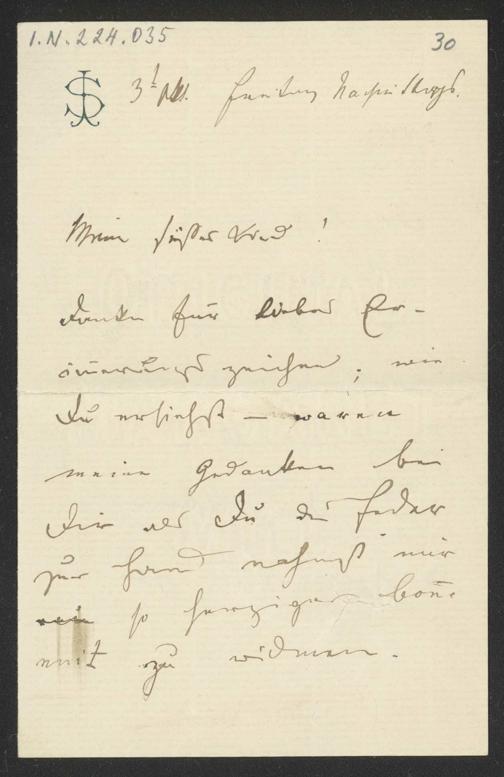 I.N. 224.035
30
JS
3½ Uhr. Freitag Nachmittags.
Mein süßes Kind!
Danke für liebes Er-
innerungszeichen; wie
Du ersiehst – waren
meine Gedanken bei
Dir als Du die Feder
zur Hand nahmst mir
so herzigen
zu widmen.